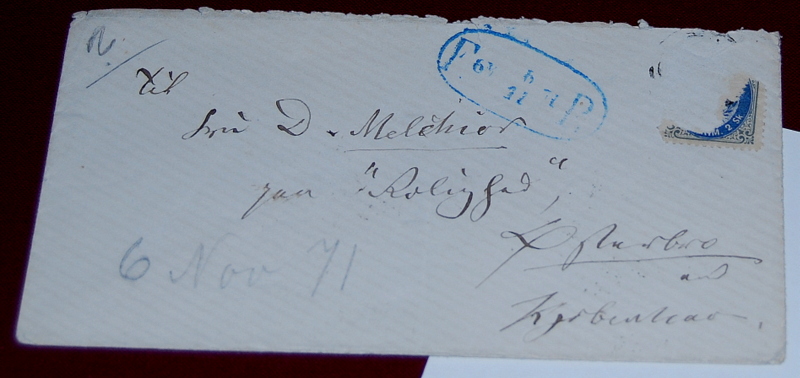 Til
Fru D. Melchior
paa "Rolighed",
Østerbro
ved
Kjøbenhavn.
6 Nov 71
F P
6
11
2 Sk